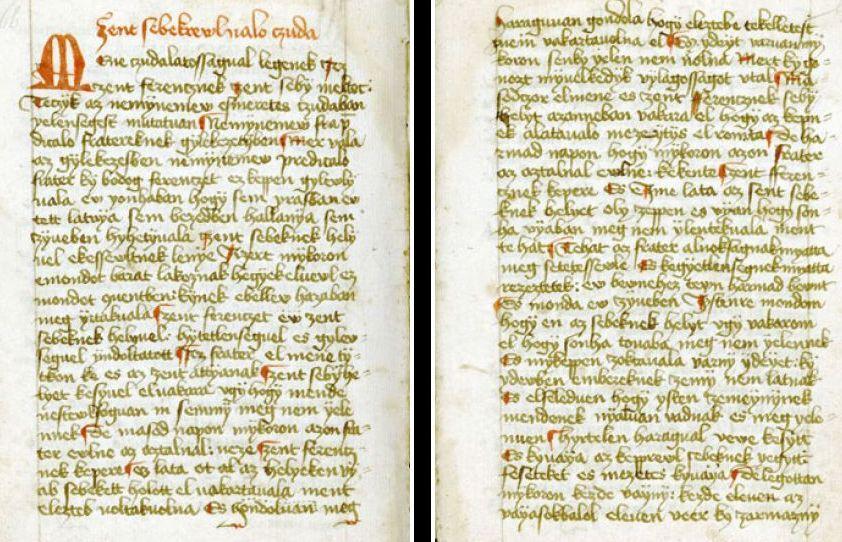 Zent sebekrewl ualo czuda
Mene czudalatossagual legenek
zent ferencznek zent seby meltot:
Teczyk az nemynemew esmeretes czudaban
yelensegest mutatuan Nemynemew
fratereknek gylekezetyben Mert vala
az gylekezesben nemynemew predicalo
frater ky bodog ferenczet ez keppen gylewly
uala ew yonhaban hogy sem
tett latuya sem bezedben hallanya sem
czyueben hyhetyuala zent sebeknek hely
uel ekessewltnek lennye mykoron
emondot barat lakoznak hegyek eluewl ez
mondot ebellew hazaban
meg Zent ferenczet ew zent
sebeknek helyuel: hytetlensequel es gylew
sequel yndoltatott Ez frater el mene ty
tkon ke es az zent attyanak zent seby he
lyet kesyuel eluakara vgy hogy mende
semmy meg nem yele
nnek De masod napon mykoron azon fra
ter ewlne az asztalnal: neze Zent ferencz
nek kepere es lata ot al az helyeken vy
ab sebekett holott el vakartauala ment
elezteb voltakuolna Es gondoluan meg
haraguuan gondola hogy elezzebe tekelletest
nem vakartauolna el Es ydeyt varuan my
koron senky yelen nem uolna Mert ky ge
nozt myuelkedyk vylagossagot vtal Ma
sodzor elmene es zent Ferencznek seby
helyt azanneban vakara el hogy az kepn
ek alatauala mezeytys el ronta De ha
rmad napon hogy mykoron azon frater
az aztalnal ewlne: kekente Zent feren
cznek kepere Es Eyme lata az zent sebe
knek helyet oly zeppen es vyian hogy son
ha vyaban meg nem yelentekuala ment
te hat Tehat az frater alnoksagnak myatta
meg setetessewle Es kegyetlensegnek myatta
rezeztetek: ew bewnehez teyn harmad bewnt
Es monda ew czyueben Ystenre mondom
hogy en az sebeknek helyt vgy vakarom
el hogy sonha touaba meg nem yelennek
Es mykeppen zoktauala varny ydeyet: ky
ydewben embereknek zemy nem latnak
Es elfeleduen hogy ysten zemeynynek
mendenek nyluan vadnak es meg yele
nuen hyrtelen haragual vewe kesytt
Es kyuaya az kepprewl sebeknek
feseteket es mezetes kyuaya Delegottan
mykoron kezde vayny: kezde eleuen az
vayasokbalol eleuen veer ky zarmazny